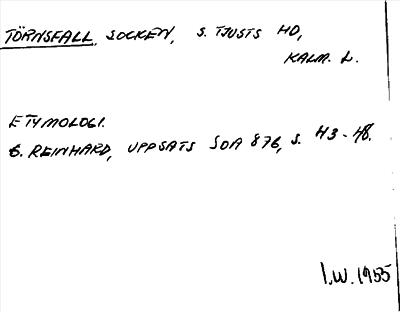 TÖRNSFALL, SOCKEN, S. TJUSTS HD,
KALM. L.
ETYMOLOGI.
G. REINHARD, UPPSATS SOA 876, S. 43-48.
I.W. 1955